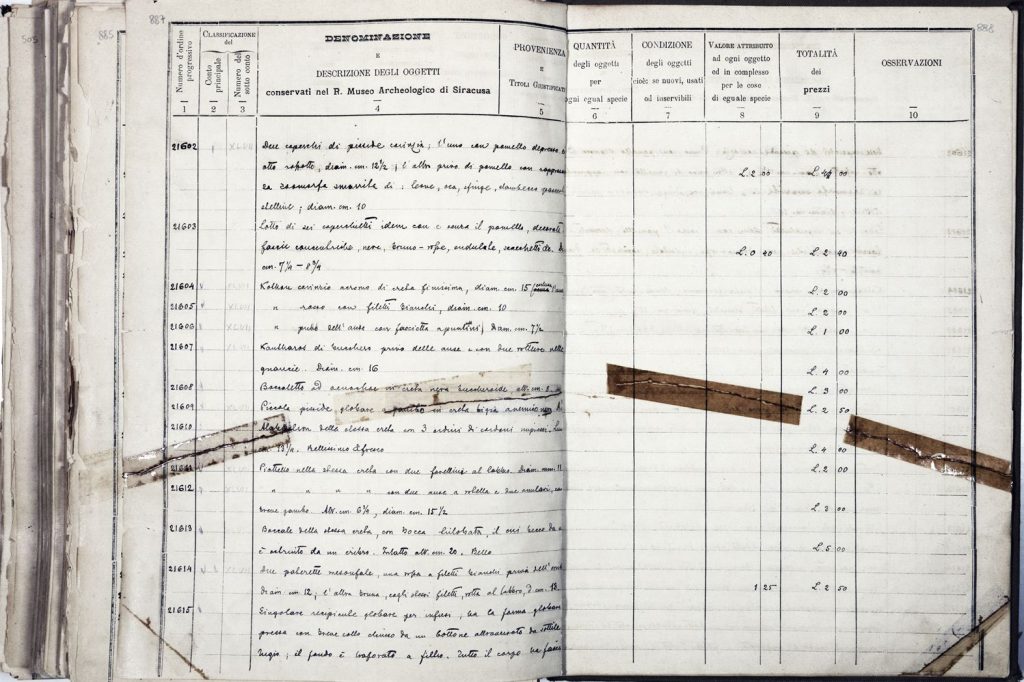 505
885
887
888
Numero d'ordine progressivo
CLASSIFICAZIONE
del
Conto principale
Numero del sotto conto
DENOMINAZIONE
E
DESCRIZIONE DEGLI OGGETTI
conservati nel R. Museo Archeologico di Siracusa
PROVENIENZA
E
TITOLI GIUSTIFICATI
QUANTITÀ
degli oggetti
per
ogni egual specie
CONDIZIONE
degli oggetti
cioè: se nuovi, usati
od inservibili
VALORE ATTRIBUITO
ad ogni oggetto
ed in complesso
per le cose
di eguale specie
TOTALITÀ
dei
prezzi
OSSERVAZIONI
1 2 3 4 5 6 7 8 9 10
21602 Due coperchi di pisside corinzia; l'uno con pomello depresso e
otto rosette, diam. cm. 12½; l'altro privo di pomello con rappresen
za zoomorfa smarrita di: leone, oca, sfinge, L. 2 00 L. 4 00
stelline; diam. cm. 10
21603 Lotto di sei coperchietti idem con e senza il pomello, decorati
fascie concentriche, nere, bruno-rosse, ondulate, scacchetti etc. L. 0 40 L. 2 40
cm. 7¼ – 8¾
21604 Kothon corinzio acromo di creta finissima, diam. cm. 15 L. 2 00
21605 " rosso con filetti bianchi, diam. cm. 10 L. 2 00
21606 " privo dell'ansa con fascietta a puntini, diam. cm. 7½ L. 1 00
21607 Kantharos di bucchero privo delle anse e con due rotture nelle
guancie. Diam. cm. 16 L. 4 00
21608 Boccaletto ad oenochoe in creta nera buccheroide alt. cm. 8 L. 3 00
21609 Piccola pisside globare a gambo in creta bigia L. 2 50
21610 Alabastron della stessa creta con 3 ordini di cordoni
cm. 13½. Bellissimo L. 4 00
21611 Piattello nella stessa creta con due forellini al labbro. Diam. mm. 11 L. 2 00
21612 " " " " con due anse a rotella e due anulari, con
breve gambo. Alt. cm. 6¾, diam. cm. 15½ L. 3 00
21613 Boccale della stessa creta, con bocca trilobata, il cui becco da a
è ostruito da un cribro. Intatto alt. cm. 20. Bello L. 5 00
21614 Due paterette mesomfale, una rossa a filetti bianchi priva dell'
Diam. cm. 12; l'altra bruna, cogli stessi filetti, rotta al labbro, d. cm. 13. 1 25 L. 2 50
21615 Singolare recipicule globare per infusi, ha la forma globare
pressa con breve collo chiuso da un bottone attraversato da sottile
bugio; il fondo è traforato a filtro. Tutto il corpo ha fasce